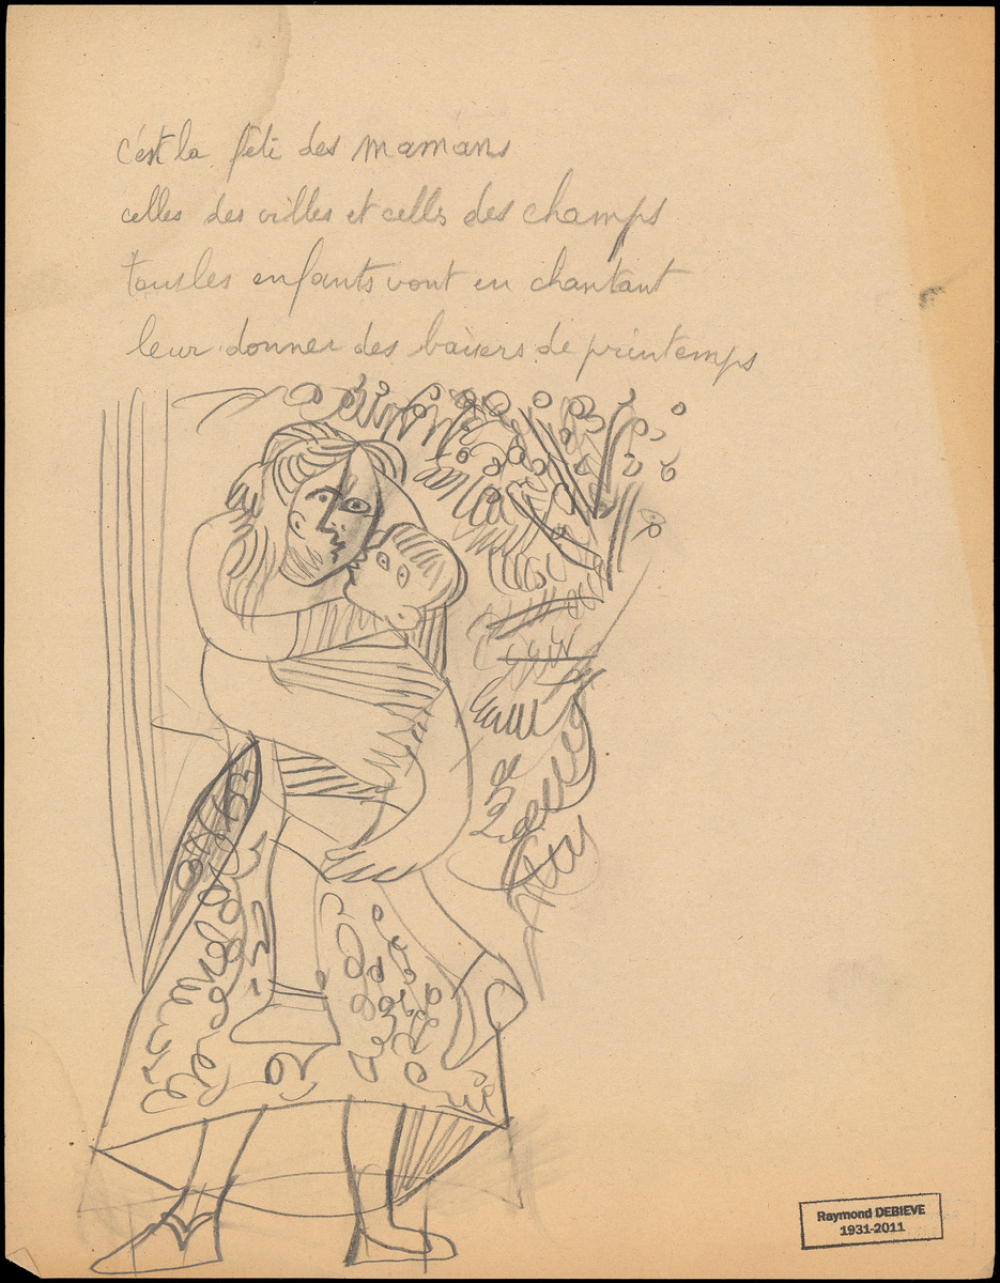 c'est la fête des mamans
celles des villes et celles des champs
tous les enfants vont en chantant
leur donner des baisers de printemps
Raymond DEBIEVE
1931-2011